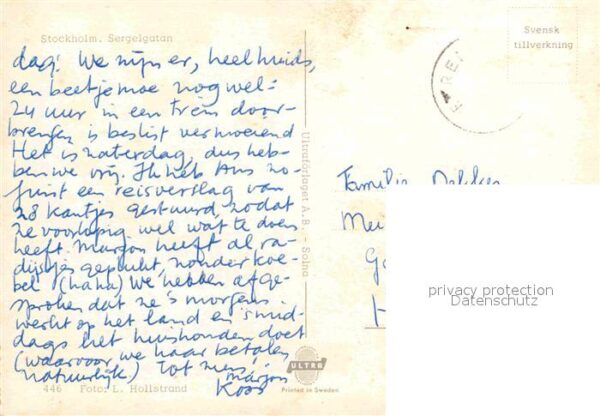 Stockholm. Sergelgatan
dag! We zijn er, heelhuids,
een beetje moe nog wel:
24 uur in een trein door-
brengen is beslist vermoeiend
Het is zaterdag, dus heb-
ben we vrij. Ik heb Ans zo-
juist een reisverslag van
28 kantjes gestuurd, zodat
ze voorlopig wel wat te doen
heeft. Marjon heeft al ra-
dijsjes geplukt, zonder koe-
bel (haha) We hebben afge-
sproken dat ze 's morgens
werkt op het land en 's mid-
dags het huishouden doet
(waarvoor we haar betalen
natuurlijk) Tot ziens,
Marjon
Koos
446 Foto: L. Hollstrand
Ultraförlaget A.B. - Solna
ULTRA
Printed in Sweden
Svensk
tillverkning
Familie
privacy protection
Datenschutz